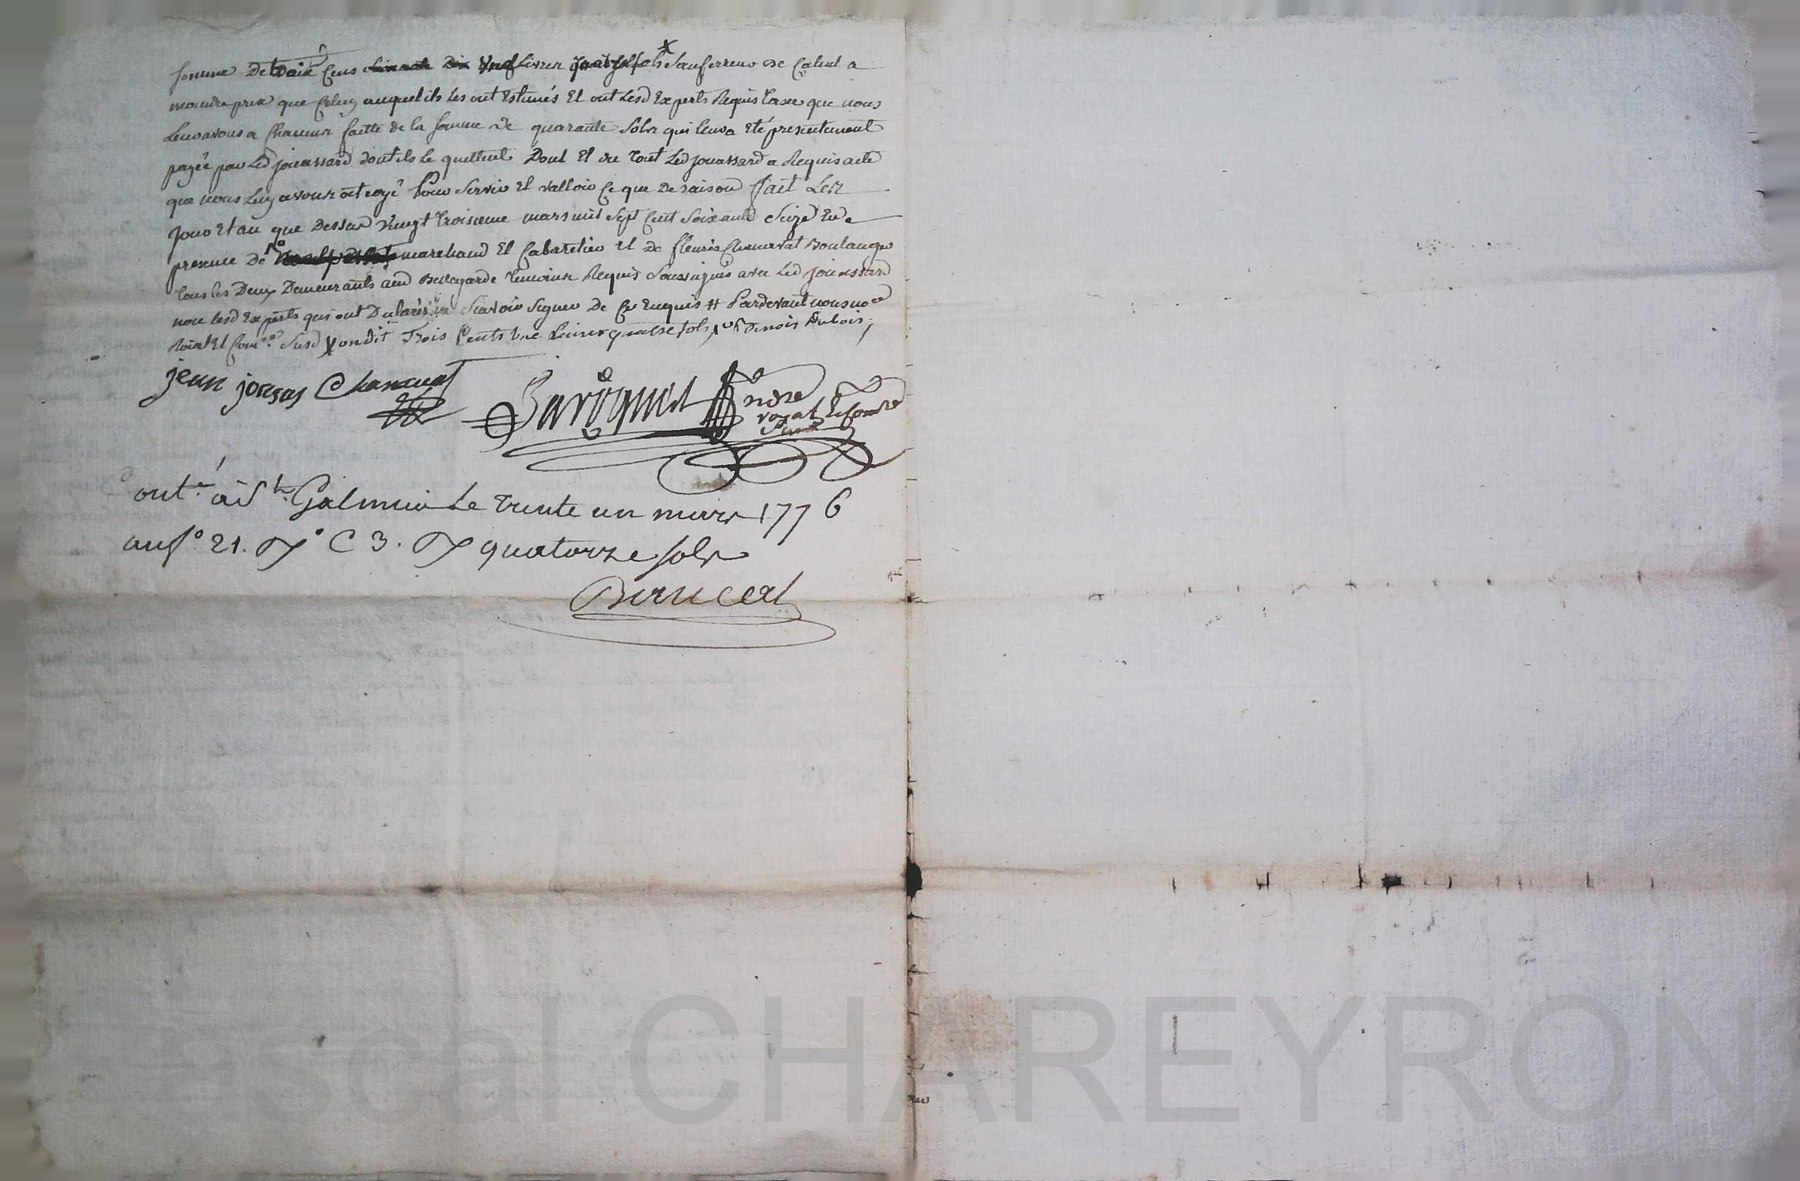 somme De trois Cens livres quatre sols Sauf erreur de Calcul a
moindre prix que Celuy auquel ils Les ont Estimés Et ont Lesd Experts Requis taxe que nous
Leur avons a Chacun faitte de la somme de quarante Sols qui leur a Eté presentement
payée par Led jouassard dont ils le quittent Dont Et du tout Led jouassard a Requis acte
que nous Luy avons octroyé pour Servir Et valloir Ce que De raison fait Les
Jour Et an que Dessus vingt troisieme mars mil Sept Cent Soixante Seize En
presence De marchand Et Cabaretier Et de fleuris Chanavat Boulanger
tous les Deux Demeurants aud Bellegarde temoins Requis Soussignés avec Led jouassard
non lesd Experts qui ont Declarés ne Scavoir Signer De Ce Enquis # Pardevant nous no.re
Roial Et Com.re Susd X on dit Trois Cents une Livres quatre sols
jean joassas Chanavat
Baroquiet no.re
royal
Cont.é à S.t Galmier Le trente un mars 1776
au f.o 21. R.o C 3. R quatorze sols
Bancel
Pascal CHAREYRON